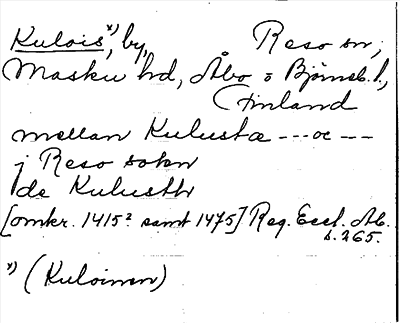 Kulois x), by, Reso sn,
Masku hd, Åbo o Björneb. l.,
Finland
mellan Kulustæ --- oc ---
j Reso sokn
de Kulusth
[omkr. 1415² samt 1475] Reg. Eccl. Ab.
s. 265.
x) (Kuloinen)